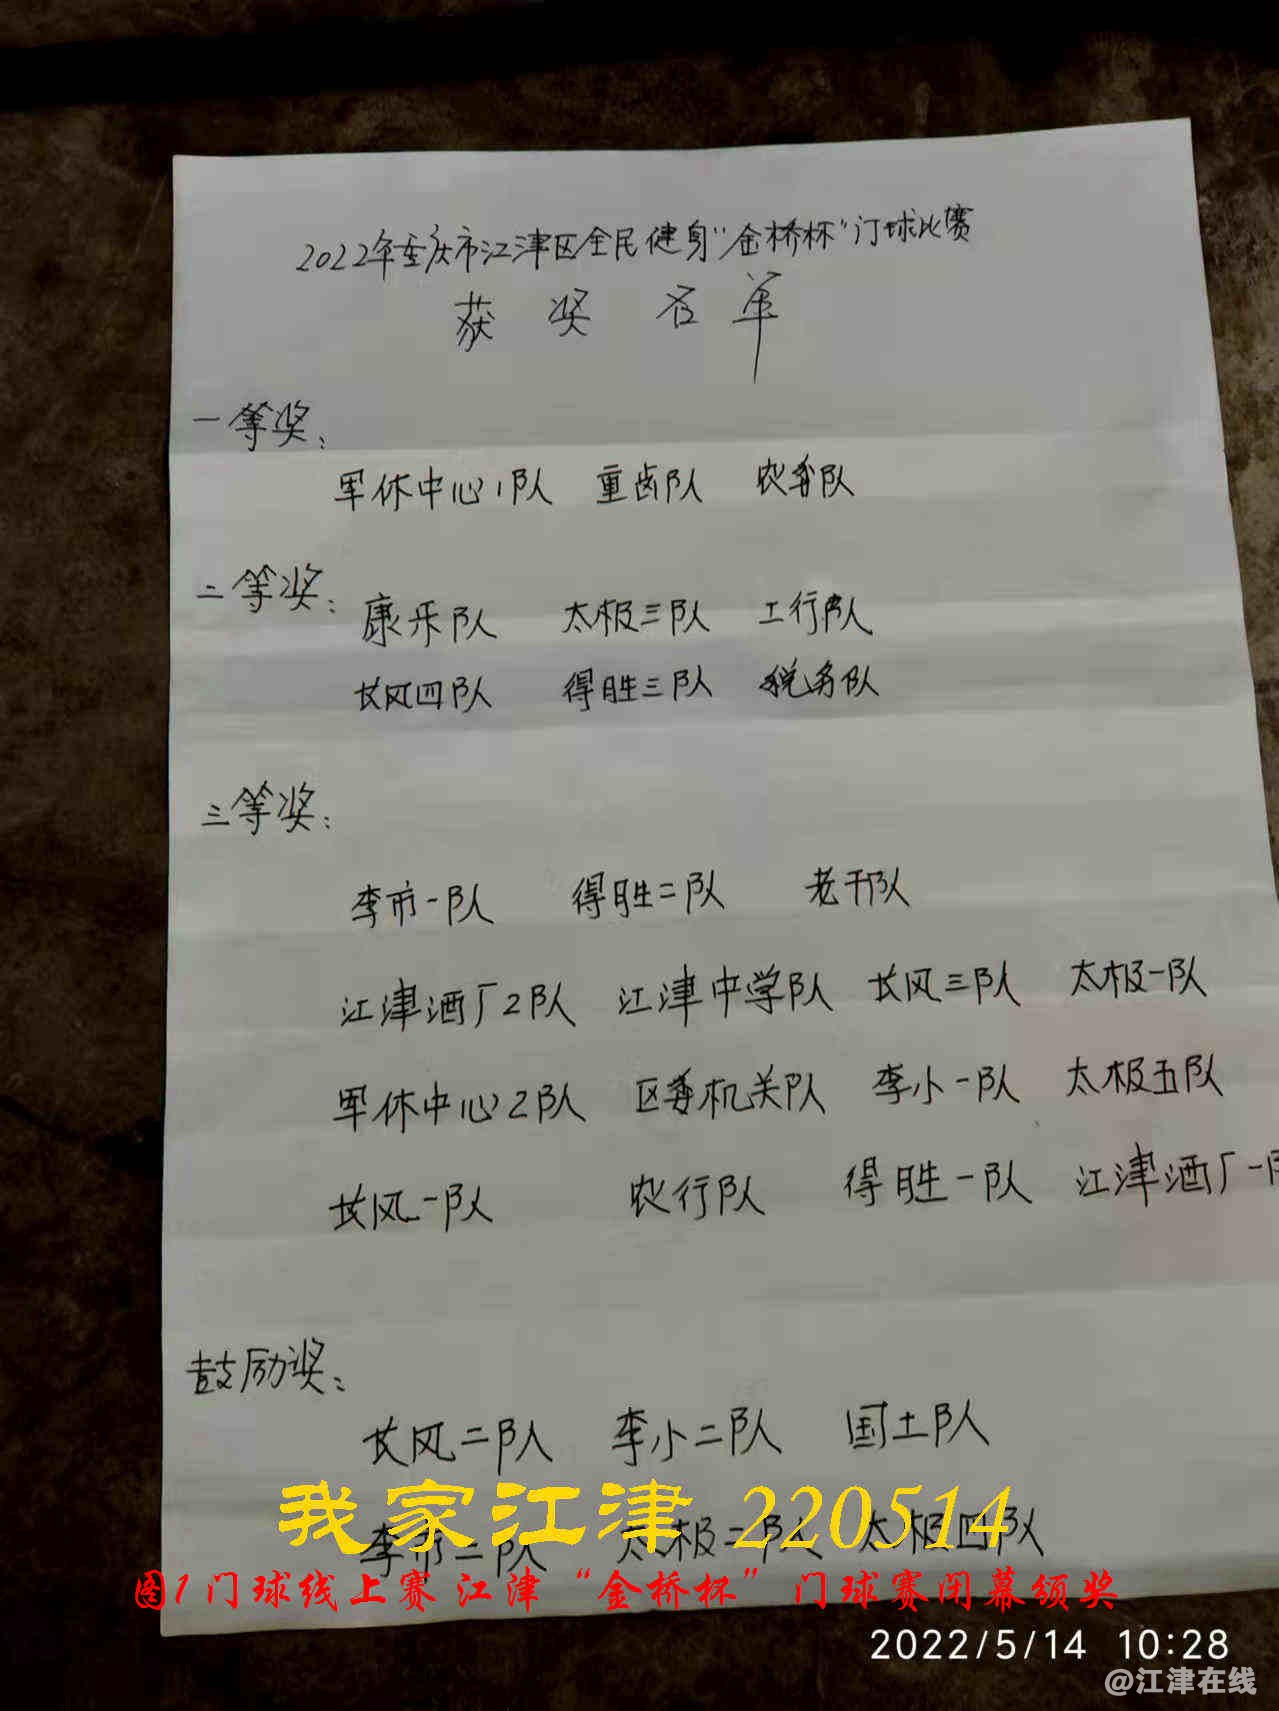 2022年重庆市江津区全民健身"金桥杯"门球比赛
获奖名单
一等奖:
军休中心1队 重齿队 农委队
二等奖:
康乐队 太极三队 工行队
长风四队 得胜三队 税务队
三等奖:
李市一队 得胜二队 老干队
江津酒厂2队 江津中学队 长风三队 太极一队
军休中心2队 区委机关队 李小一队 太极五队
长风一队 农行队 得胜一队 江津酒厂一队
鼓励奖:
长风二队 李小二队 国土队
我家江津 220514
李市二队 太极二队 太极四队
图1门球线上赛 江津“金桥杯”门球赛闭幕颁奖
2022/5/14 10:28
@江津在线